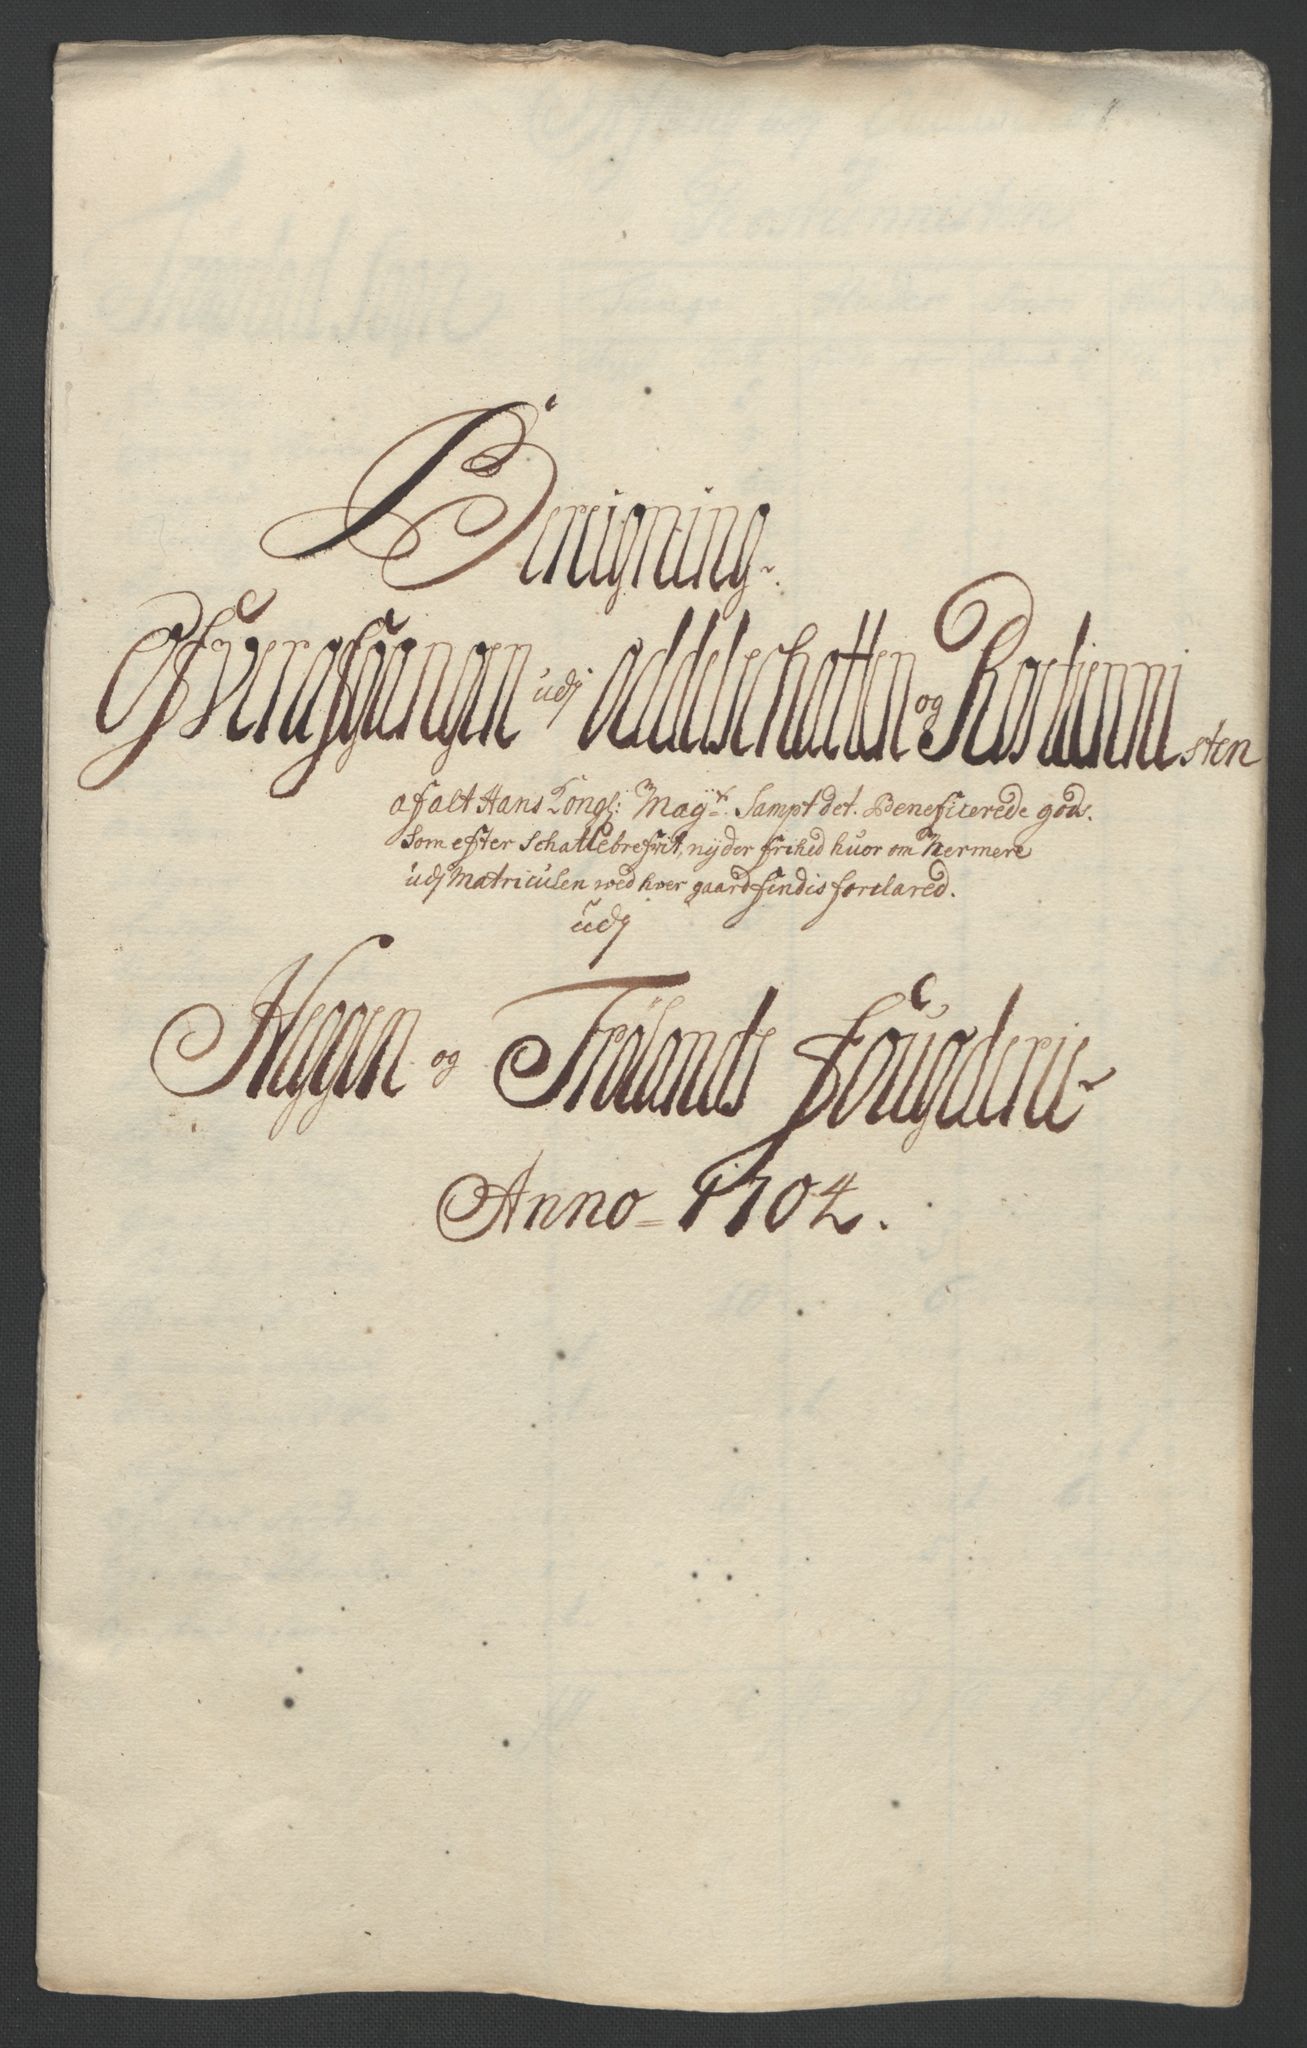 Bereigning
Offvergangen udj oddelschatten og Rostienni
sten
af alt Hans Kongl: Mayts. Sampt det. Beneficerede gods.
som efter Schattebrefvit, nyder frihed huor om Nermere
udj Matriculen wed hver gaard findis forclared.
udj
Heggen og Frölands fougderie
Anno 1704.